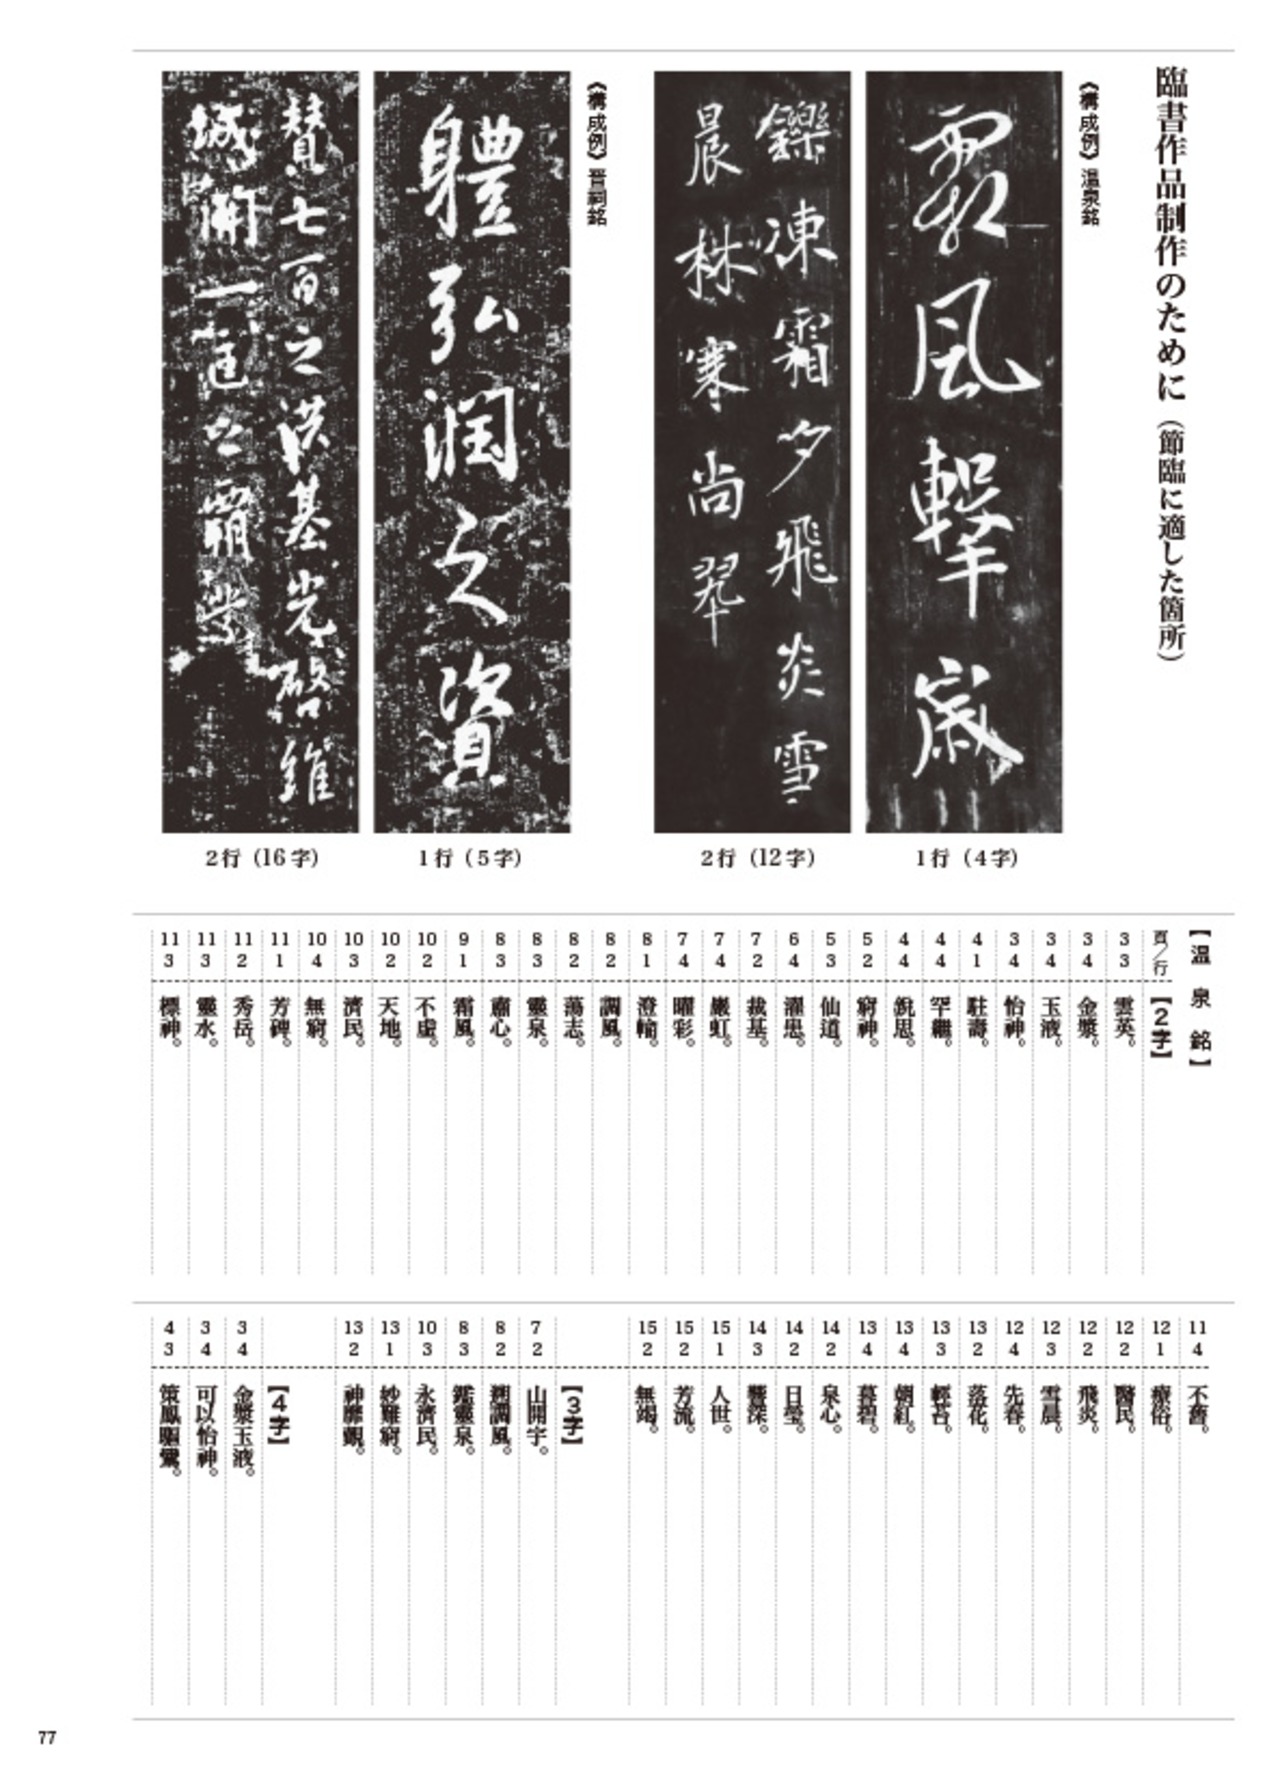 臨書作品制作のために（節臨に適した箇所）
《構成例》温泉銘
霜風擊歲
1行（4字）
鑠凍霜夕飛炎雪
晨林寒尚翠
2行（12字）
《構成例》晋祠銘
體弘潤之資
1行（5字）
贊七百之洪基光啓維
城開一匡之霸業
2行（16字）
【温泉銘】
頁/行【2字】
3 3 雲英。
3 4 金漿。
3 4 玉液。
3 4 怡神。
4 1 駐壽。
4 4 罕繼。
4 4 銳思。
5 2 窮神。
5 3 仙道。
6 4 濯患。
7 2 裁基。
7 4 巖虹。
7 4 曜彩。
8 1 澄輪。
8 2 調風。
8 2 蕩志。
8 3 靈泉。
8 3 肅心。
9 1 霜風。
10 2 不虛。
10 2 天地。
10 3 濟民。
10 4 無窮。
11 1 芳碑。
11 2 秀岳。
11 3 靈水。
11 3 標神。
11 4 不舊。
12 1 療俗。
12 2 醫民。
12 2 飛炎。
12 3 雪晨。
12 4 先春。
13 2 落花。
13 3 輕苔。
13 4 朝紅。
13 4 暮碧。
14 2 泉心。
14 2 日瑩。
14 3 響深。
15 1 人世。
15 2 芳流。
15 2 無竭。
【3字】
7 2 山開宇。
8 2 潤調風。
8 3 鑑靈泉。
10 3 永濟民。
13 1 妙難窮。
13 2 神靡覿。
【4字】
3 4 金漿玉液。
3 4 可以怡神。
4 3 策鳳驅鸞。
77